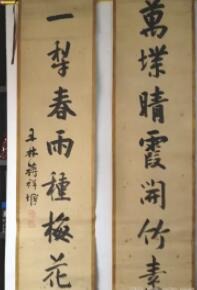 萬堞晴霞開竹素
一犁春雨種梅花
丹林蔣祥墀